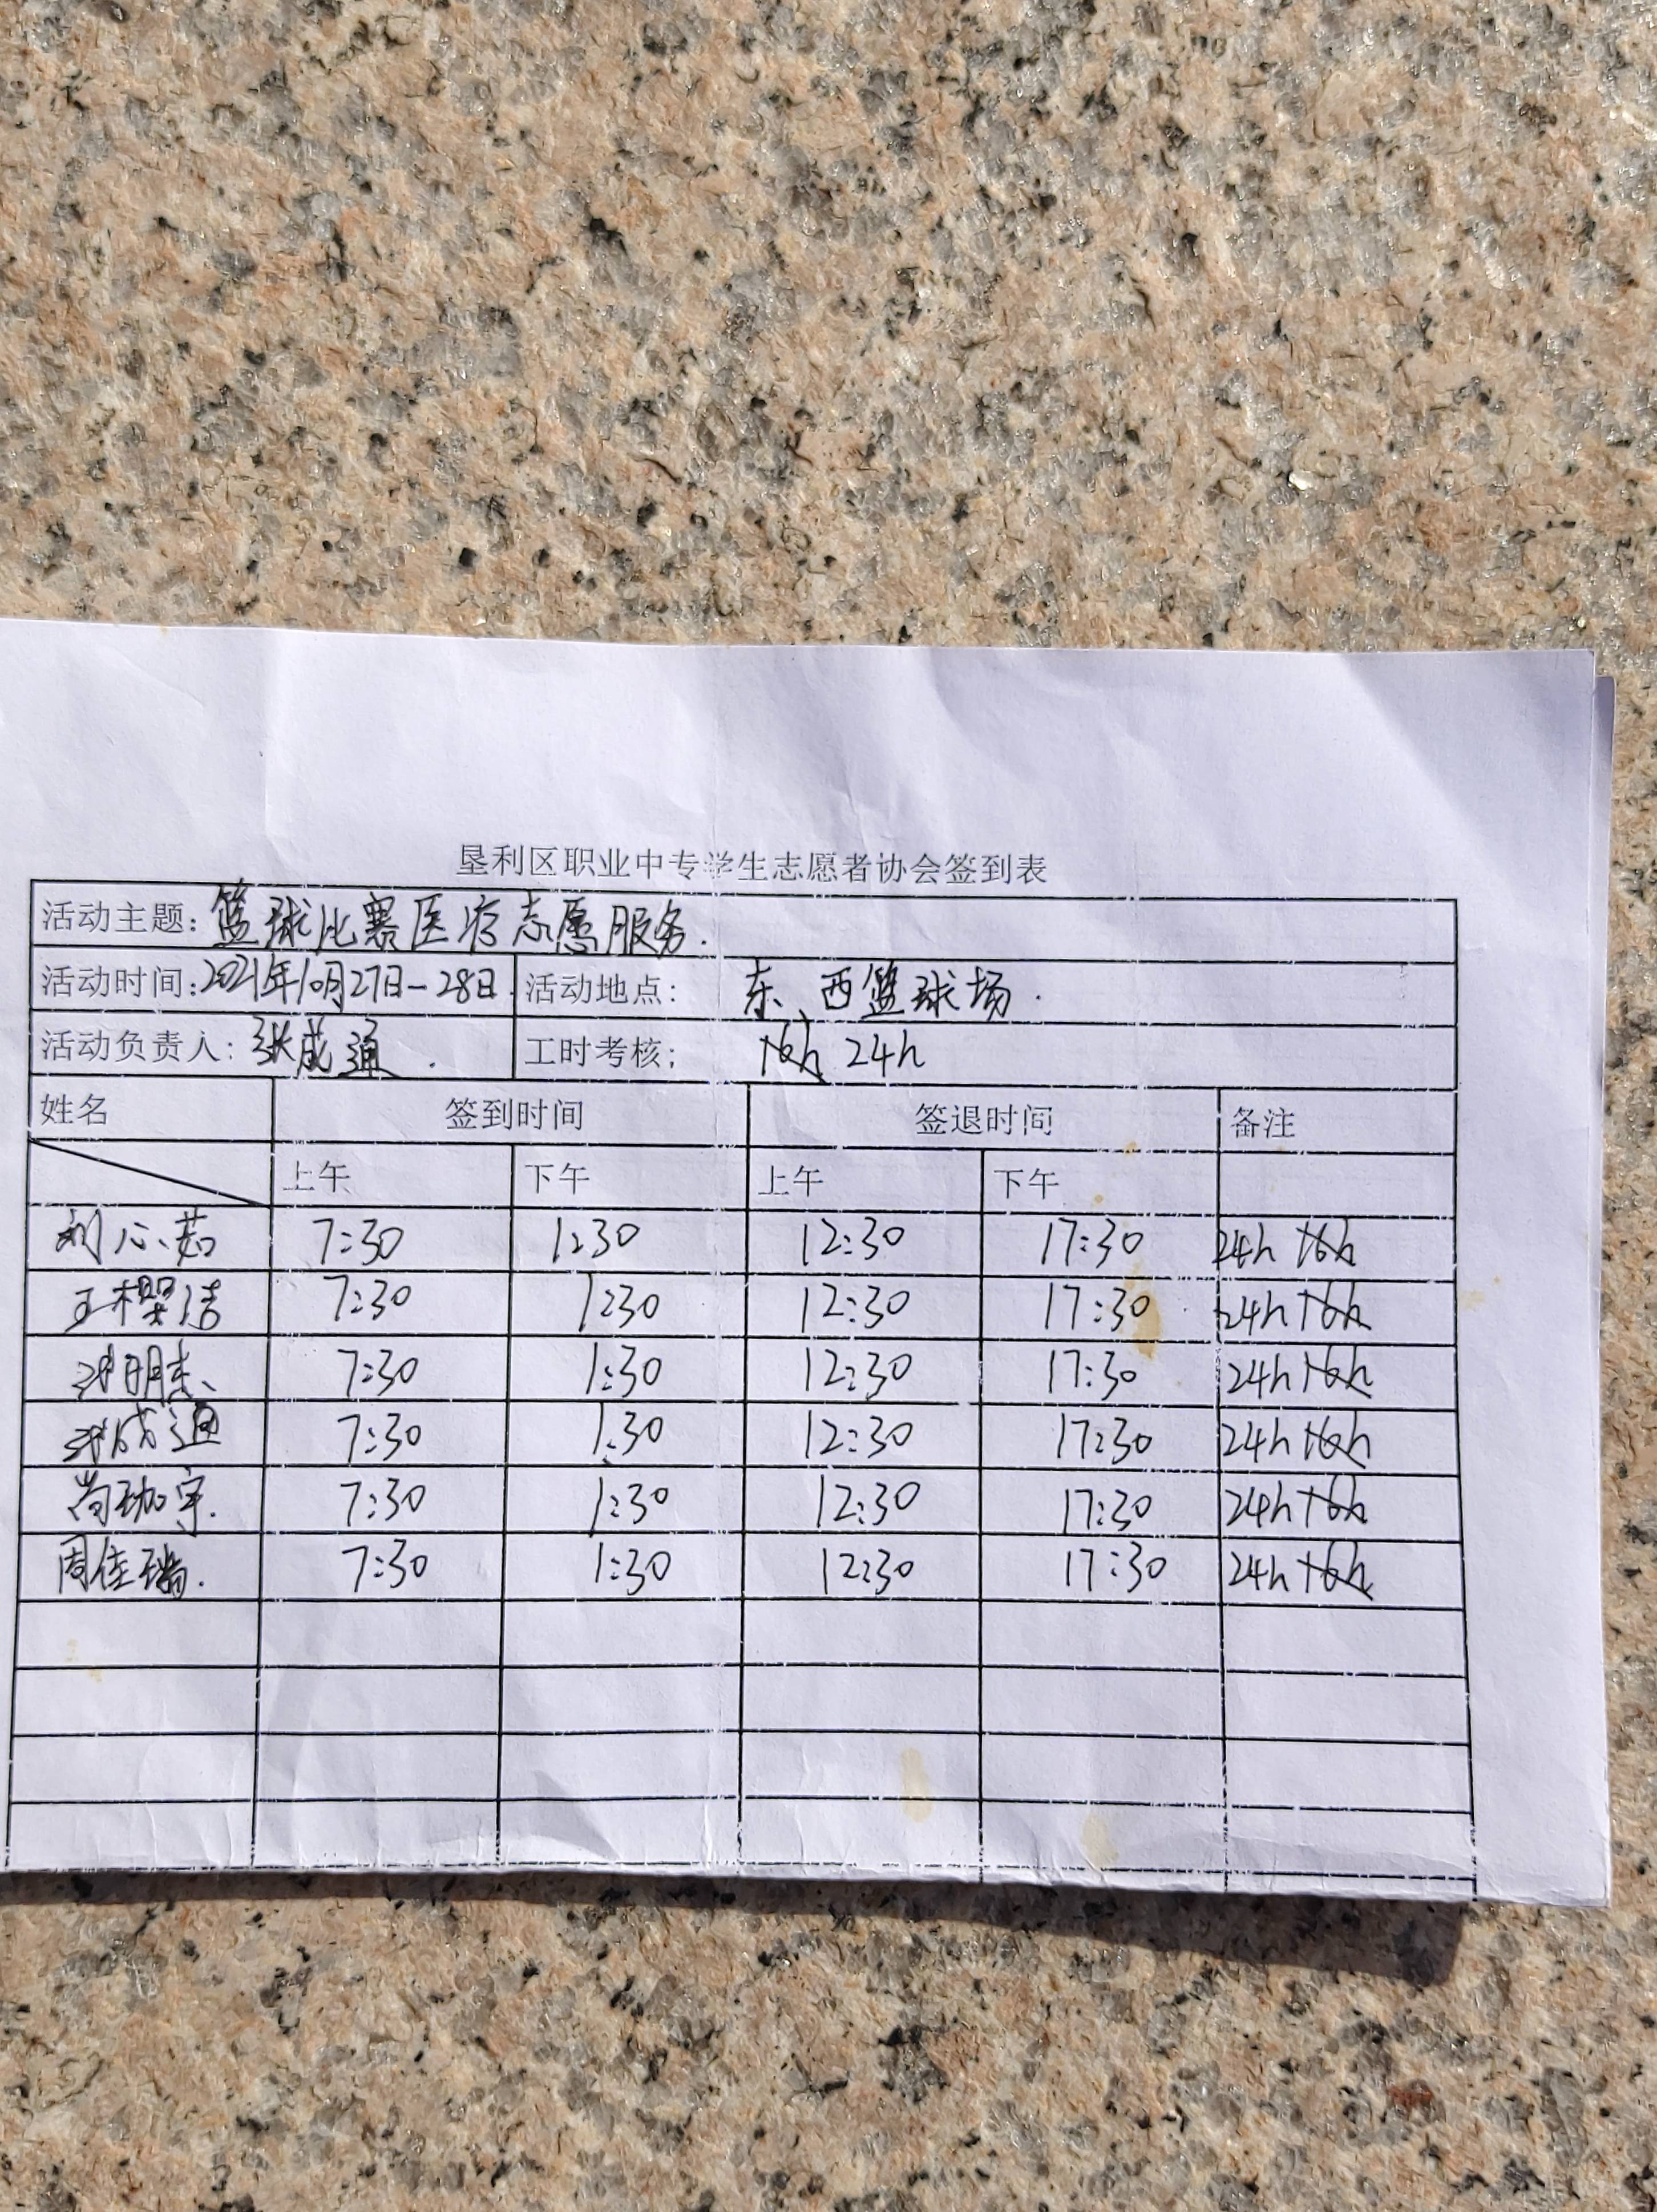 垦利区职业中专学生志愿者协会签到表
活动主题：篮球比赛医疗志愿服务.
活动时间：2021年10月27日-28日. 活动地点： 东、西篮球场.
活动负责人：张成通. 工时考核； 16h 24h
姓名 签到时间 签退时间 备注
上午 下午 上午 下午
刘心茹 7:30 1:30 12:30 17:30 24h 16h
王樱洁 7:30 1:30 12:30 17:30 24h 16h
张明杰 7:30 1:30 12:30 17:30 24h 16h
张成通 7:30 1:30 12:30 17:30 24h 16h
尚珈宇. 7:30 1:30 12:30 17:30 24h 16h
周佳瑞. 7:30 1:30 12:30 17:30 24h 16h